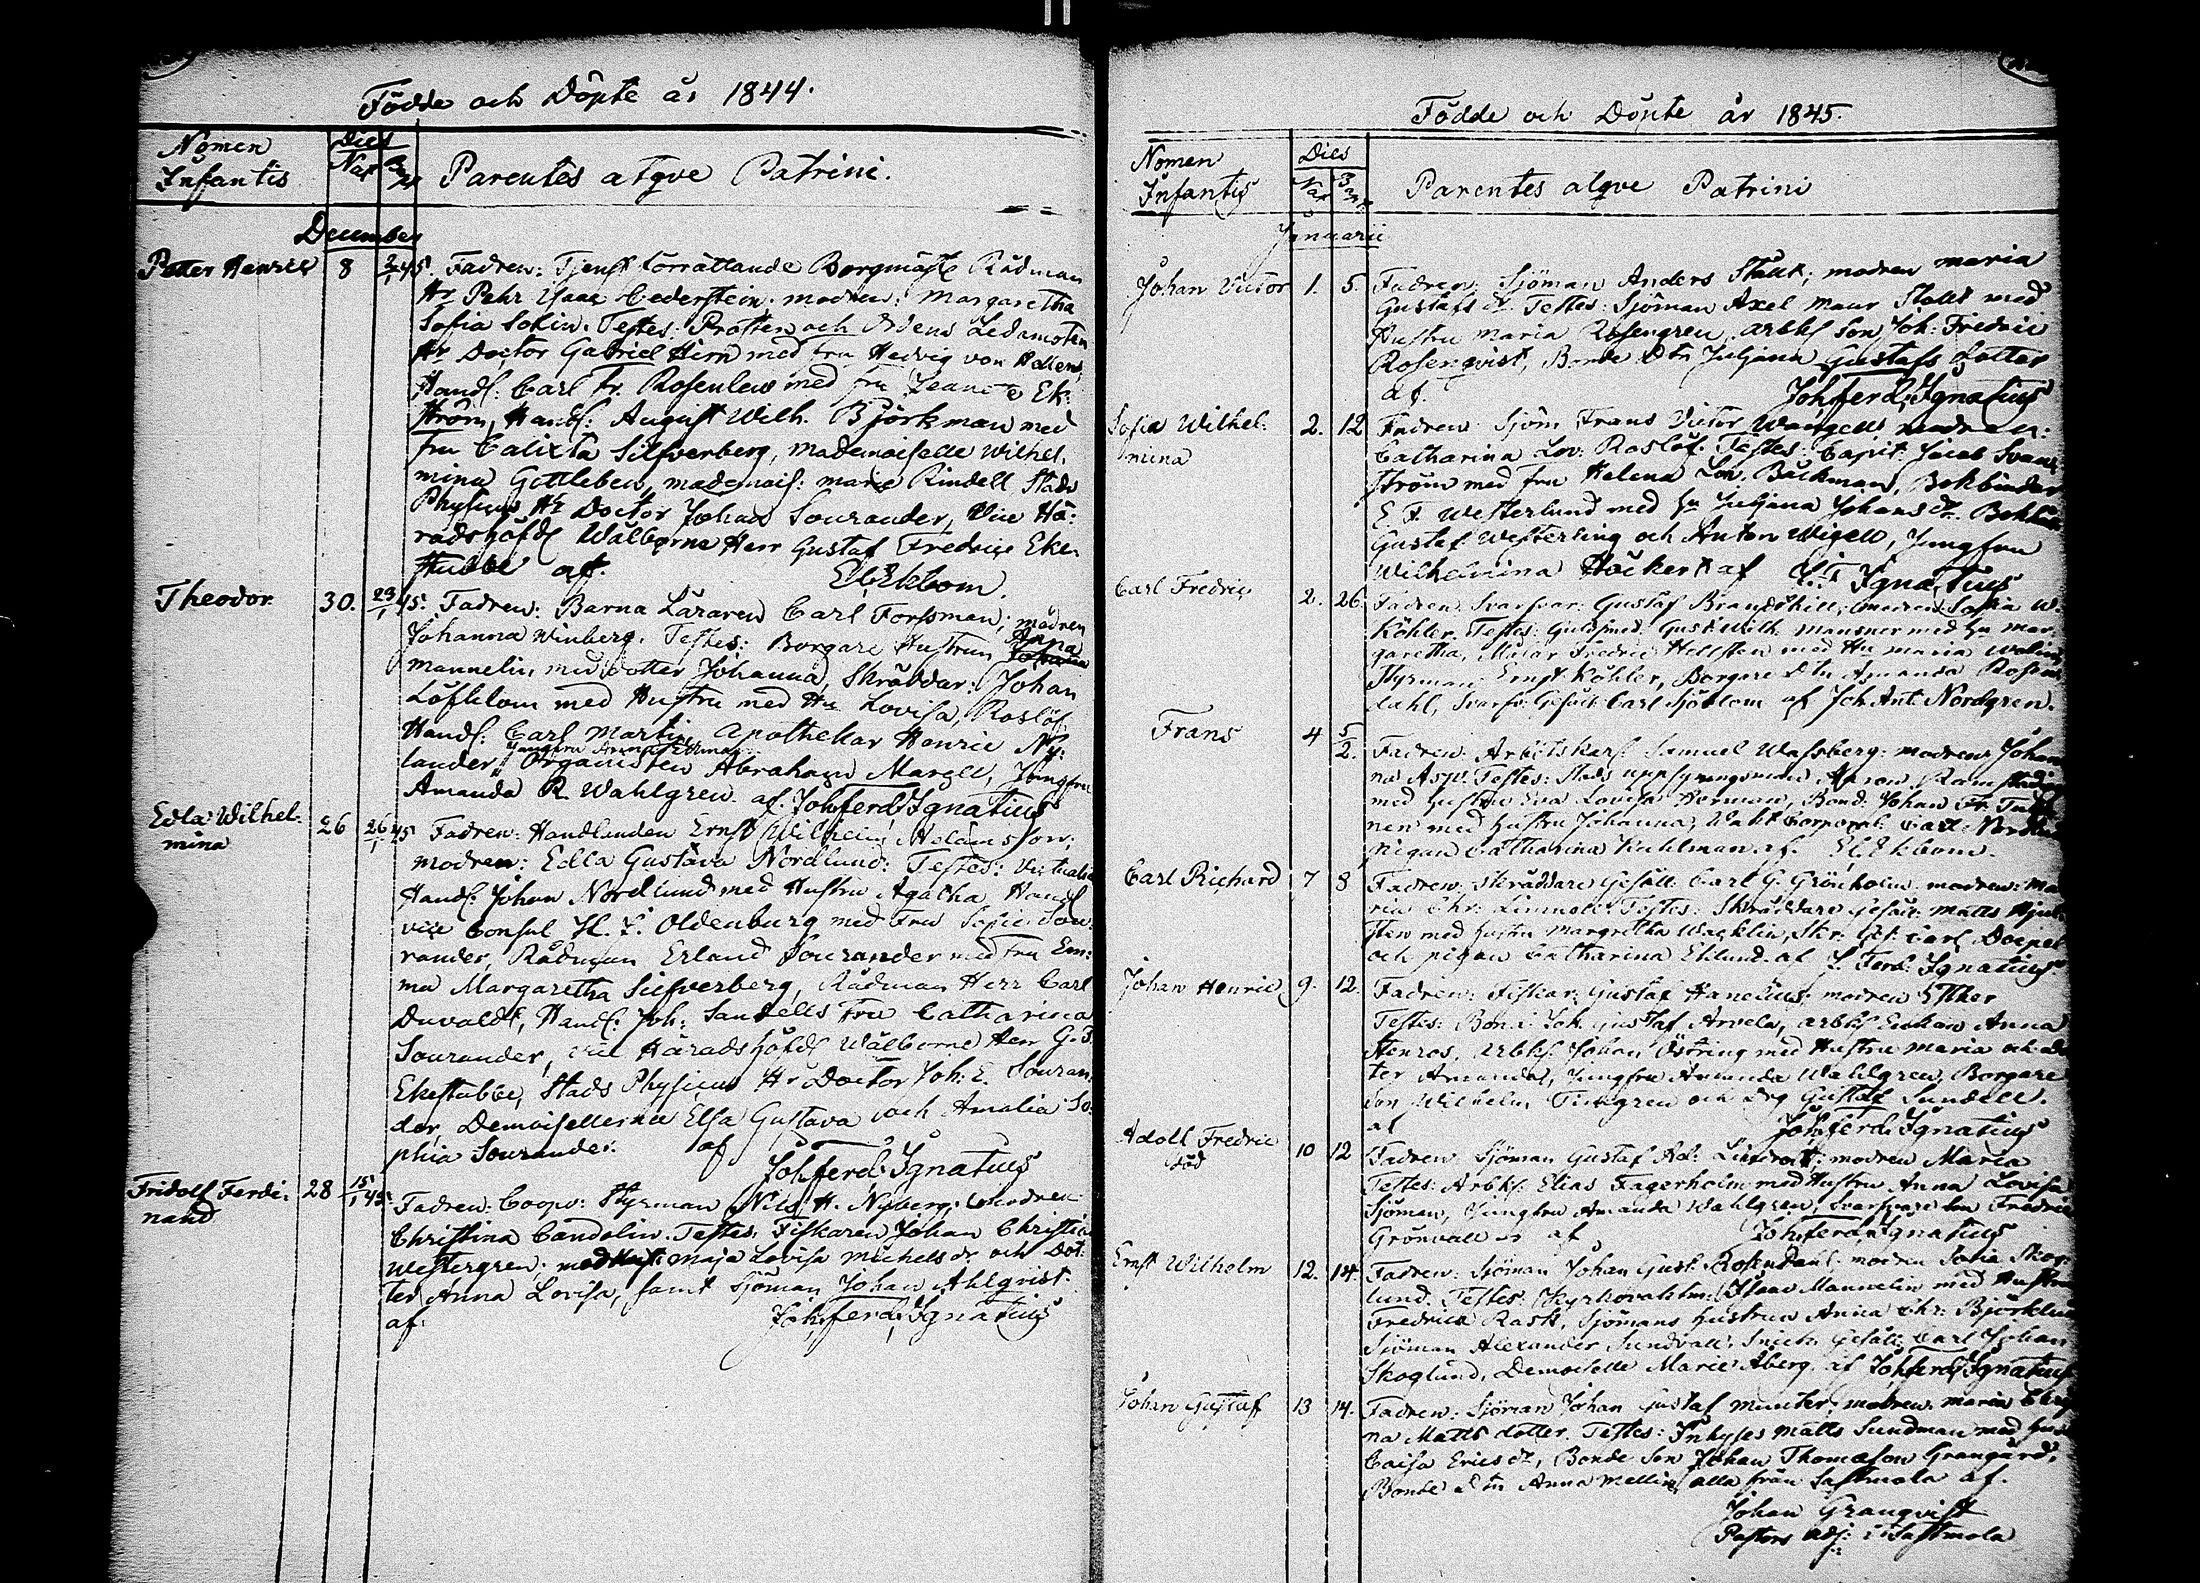 Födde och Döpte år 1844.
Nomen Infantis
Dies
Nat Bapt
Parentes atqve Patrini.
December
Petter Henric 8 2/1 45. Fadren: Tjenst förrättande Borgmäst Rådman
Hr Pehr Isaac Cederstein. modren: Margaretha
Sofia Sohin. Testes: Prosten och Ordens Ledamoten
Hr Doctor Gabriel Hirn med fru Hedvig von Hellens,
Handl: Carl Fr. Rosenlew med fru Jeanette Ek-
ström, Handl: August Wilh. Björkman med
fru Calixta Silfverberg, Mademoiselle Wilhel-
mina Gottleben, mademois: marie Rindell, Stads
Physicus Hr Doctor Johan Sourander, Vice Hä-
radshöfd Wälborne Herr Gustaf Fredric Eke-
stubbe af. El. Ekbom.
Theodor 30. 29/1 45. Fadren: Barna Läraren Carl Forssman; modren
Johanna Winberg. Testes: Borgare Hustrun Anna
Mannelin, med dotter Johanna, Skräddar: Johan
Löfblom med Hustru med Hu Lovisa, Roslöf,
Handl: Carl Martin, Apothekar Henric Ny-
lander, Organisten Abraham Marell, Jungfru
Amanda R. Wahlgren. af. Joh: ferd: Ignatius
Edla Wilhel-
mina 26 26/1 45 Fadren: Handlanden Ernst Wilhelm Adamsson;
modren: Edla Gustava Nordlund: Testes: Victualie
Handl: Johan Nordlund med Hustru Agatha, Handl
vice Consul H. L. Oldenburg med Fru Sofie Sou-
rander, Rådman Erland Sourander med fru Em-
ma Margaretha Silfverberg, Rådman Herr Carl
Duvaldt, Handl: Joh: Sandells Fru Catharina
Sourander, vice Häradshöfd Wälborne Herr G. F.
Ekestubbe, Stads Physicus Hr Doctor Joh: E. Souran-
der, Demoisellerna Elsa Gustava och Amalia So-
phia Sourander. af Joh: ferd: Ignatius
Fridolf Ferdi-
nand 28 15/1 45. Fadren: Coopv: Styrman Nils H. Nyberg; modren
Christina Candolin. Testes: Fiskaren Johan Christian
Westergren; med Hust: Maja Lovisa Michels dr och Dot-
ter Anna Lovisa, samt Sjöman Johan Ahlqvist.
af. Joh: ferd: Ignatius
Födde och Döpte år 1845.
Nomen Infantis
Dies
Nat Bapt
Parentes atqve Patrini
Januarii
Johan Victor 1. 5. Fadren: Sjöman Anders Ståck; modren Maria
Gustafs dr. Testes: Sjöman Axel Maur Ståck med
Hustru Maria Rosengren, arbks Son Joh: Fredric
Rosenqvist, Bonde Dtr Juljana Gustafs dotter
af. Joh: ferd: Ignatius
Sofia Wilhel-
mina 2. 12 Fadren Sjöm Frans Victor Wangell modren:
Catharina Lov: Roslöf. Testes: Capit: Jacob Svan-
ström med fru Helena Lov: Bäckman, Bokbindar
E. F. Westerlund med Hu Juljana Johans dr
Gustaf Westerling och Anton Wigell, Jungfru
Wilhelmina Höckert af Ignatius
Carl Fredric 2. 26. Fadren Svarfvar: Gustaf Brandskill, modren Sofia W.
Köhler. Testes: Guldsmed: Gust: Wilh: Mansner med Hu Mar-
garetha, Målar Fredric Hellsten med Hu Maria Wolin,
Styrman Ernst Köhler, Borgare Dtr Amanda Rosen-
dahl, Svarfv: Gesäll Carl Sjöblom af Joh. Ant: Nordgren.
Frans 4 5/2. Fadren: Arbetskarl Samuel Wassberg: modren Johan-
na Asp. Testes: Stads uppsyningsman Ramstedt
med Hustru Eva Lovisa Norman, Bond: Johan Fr.
nen med Hustru Johanna, Wakt Corporal Carl
pigan Catharina Kuhlman af. El. Ekbom.
Carl Richard 7 8 Fadren: Skräddare Gesäll Carl G. Grönholm modren: Ma-
ria Chr: Testes: Skräddare Gesäll: Matts
med Hustru Margretha Wacklin, Skr: Ges: Carl
och pigan Catharina Eklund. af J. Ferd: Ignatius
Johan Henric 9. 12. Fadren: Fiskar: Gustaf Hanelius; modren Esther
Testes: Bond: Joh: Gustaf Arvela, arbks Enkan Anna
Stenros, arbks: Johan Östring med Hustru Maria och dot-
ter Amanda, Jungfru Amanda Wahlgren, Borgare
Son Wilhelm Tingren och Drg Gustaf Sundell.
af Joh: ferd: Ignatius
Adolf Fredric
död 10 12 Fadren Sjöman Gustaf Ad: Lindroth; modren Maria
Testes: Arbks: Elias Fagerholm med Hustru Anna Lovisa
Sjöman, Jungfru Amanda Wahlgren, Svarfvare Son Fredric
Grönvall af Joh: ferd: Ignatius
Ernst Wilhelm 12. 14. Fadren: Sjöman Johan Gust: Rosendahl: modren Sofia Skog-
lund. Testes: Kyrkovaktm: Isaac Mannelin med Hustru
Fredrica Rask, Sjömans Hustrun Anna Chr: Björklund
Sjöman Alexander Sundvall, Snick: Gesäll: Carl Johan
Skoglund, Demoiselle Marie Åberg. af Joh: ferd: Ignatius
Johan Gustaf 13 14. Fadren: Sjöman Johan Gustaf Munter, modren: Maria
na Matts dotter. Testes: Inhyses Matts Sundman med
Caisa Erics dr, Bonde Son Johan Thomasson Grangård,
Bonde Dtr Anna Mellin, alla från Sastmola af.
Johan Granqvist
Pastors adj: i Sastmola